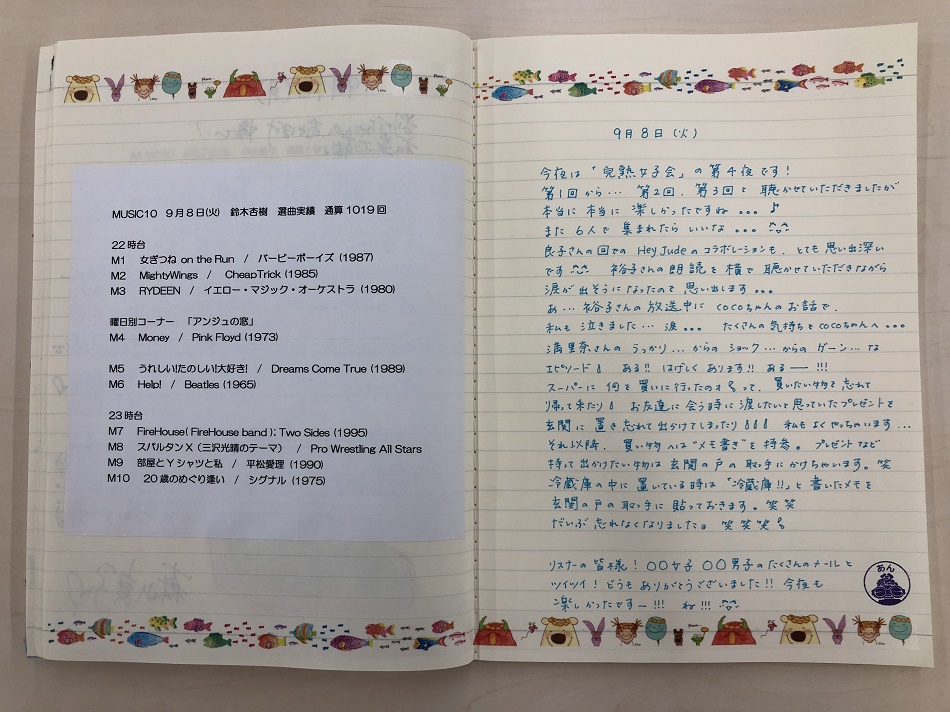 MUSIC10 9月8日(火) 鈴木杏樹 選曲実績 通算1019回
22時台
M1 女ぎつね on the Run / バービーボーイズ (1987)
M2 MightyWings / CheapTrick (1985)
M3 RYDEEN / イエロー・マジック・オーケストラ (1980)
曜日別コーナー 「アンジュの窓」
M4 Money / Pink Floyd (1973)
M5 うれしい!たのしい!大好き! / Dreams Come True (1989)
M6 Help! / Beatles (1965)
23時台
M7 FireHouse( FireHouse band ); Two Sides (1995)
M8 スパルタンX (三沢光晴のテーマ) / Pro Wrestling All Stars
M9 部屋とYシャツと私 / 平松愛理 (1990)
M10 20歳のめぐり逢い / シグナル (1975)
9月8日(火)
今夜は「完熟女子会」の第4夜です!
第1回から… 第2回、第3回と 聴かせていただきましたが
本当に 本当に 楽しかったですね 。。。♪
また 6人で 集まれたら いいな 。。。
良子さんの回での Hey Judeのコラボレーションも、とても思い出深い
です 裕子さんの朗読を 横で 聴かせていただきながら
涙が出そうになったので 思い出します 。。。
あ… 裕子さんの 放送中に cocoちゃんのお話で、
私も 泣きました… 涙 。。。 たくさんの気持ちを cocoちゃんへ 。。。
満里奈さんの うっかり…からの ショック…からの ゲーン… な
エピソード ある!! はげしく あります!! あるー!!!
スーパーに 何を 買いに行ったのか?って、買いたい物を 忘れて
帰って来たり お友達に 会う時に 渡したいと思っていたプレゼントを
玄関に 置き忘れて 出かけてしまったり 私も よくやっちゃいます…
それ以降、買い物へは"メモ書き"を 持参。プレゼントなど
持って出かけたい物は 玄関の戸の 取っ手に かけちゃいます。笑
冷蔵庫の中に 置いている時は「冷蔵庫!!」と 書いたメモを
玄関の戸の 取っ手に 貼っておきます。笑 笑
だいぶ 忘れなくなりましたョ 笑 笑 笑
リスナーの皆様! 〇〇女子 〇〇男子のたくさんのメールと
ツイツイ! どうもありがとうございました!! 今夜も
楽しかったですー!!! ね!!!
あん